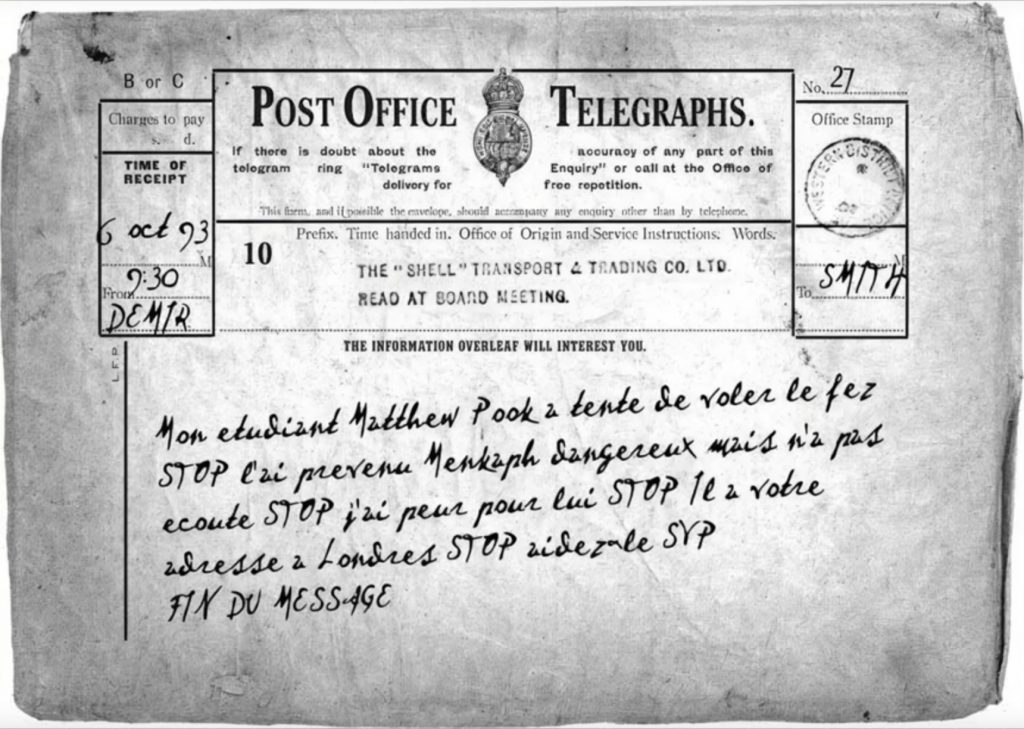 B or C
No. 27
Charges to pay
s. d.
POST OFFICE TELEGRAPHS.
Office Stamp
If there is doubt about the accuracy of any part of this
telegram ring "Telegrams Enquiry" or call at the Office of
delivery for free repetition.
This form, and if possible the envelope, should accompany any enquiry other than by telephone.
TIME OF
RECEIPT
WESTERN DISTRICT
6 oct 93
M
10
Prefix. Time handed in. Office of Origin and Service Instructions. Words.
THE "SHELL" TRANSPORT & TRADING CO. LTD.
READ AT BOARD MEETING.
M
9:30
From
DEMIR
To SMITH
THE INFORMATION OVERLEAF WILL INTEREST YOU.
Mon etudiant Matthew Pook a tente de voler le fez
STOP l'ai prevenu Menkaph dangereux mais n'a pas
ecoute STOP j'ai peur pour lui STOP Il a votre
adresse a Londres STOP aidez-le SVP
FIN DU MESSAGE